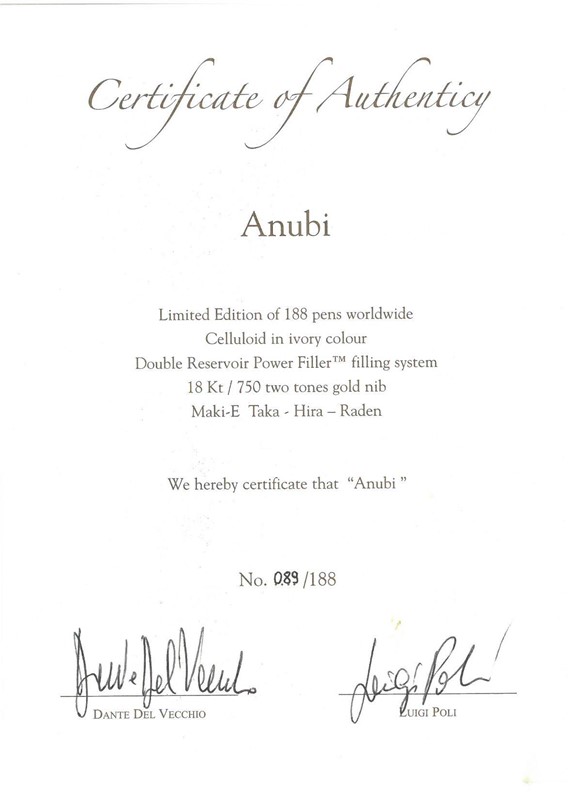 Certificate of Authenticy
Anubi
Limited Edition of 188 pens worldwide
Celluloid in ivory colour
Double Reservoir Power Filler™ filling system
18 Kt / 750 two tones gold nib
Maki-E Taka - Hira – Raden
We hereby certificate that “Anubi ”
No. 089 /188
Dante Del Vecchio Luigi Poli
DANTE DEL VECCHIO LUIGI POLI